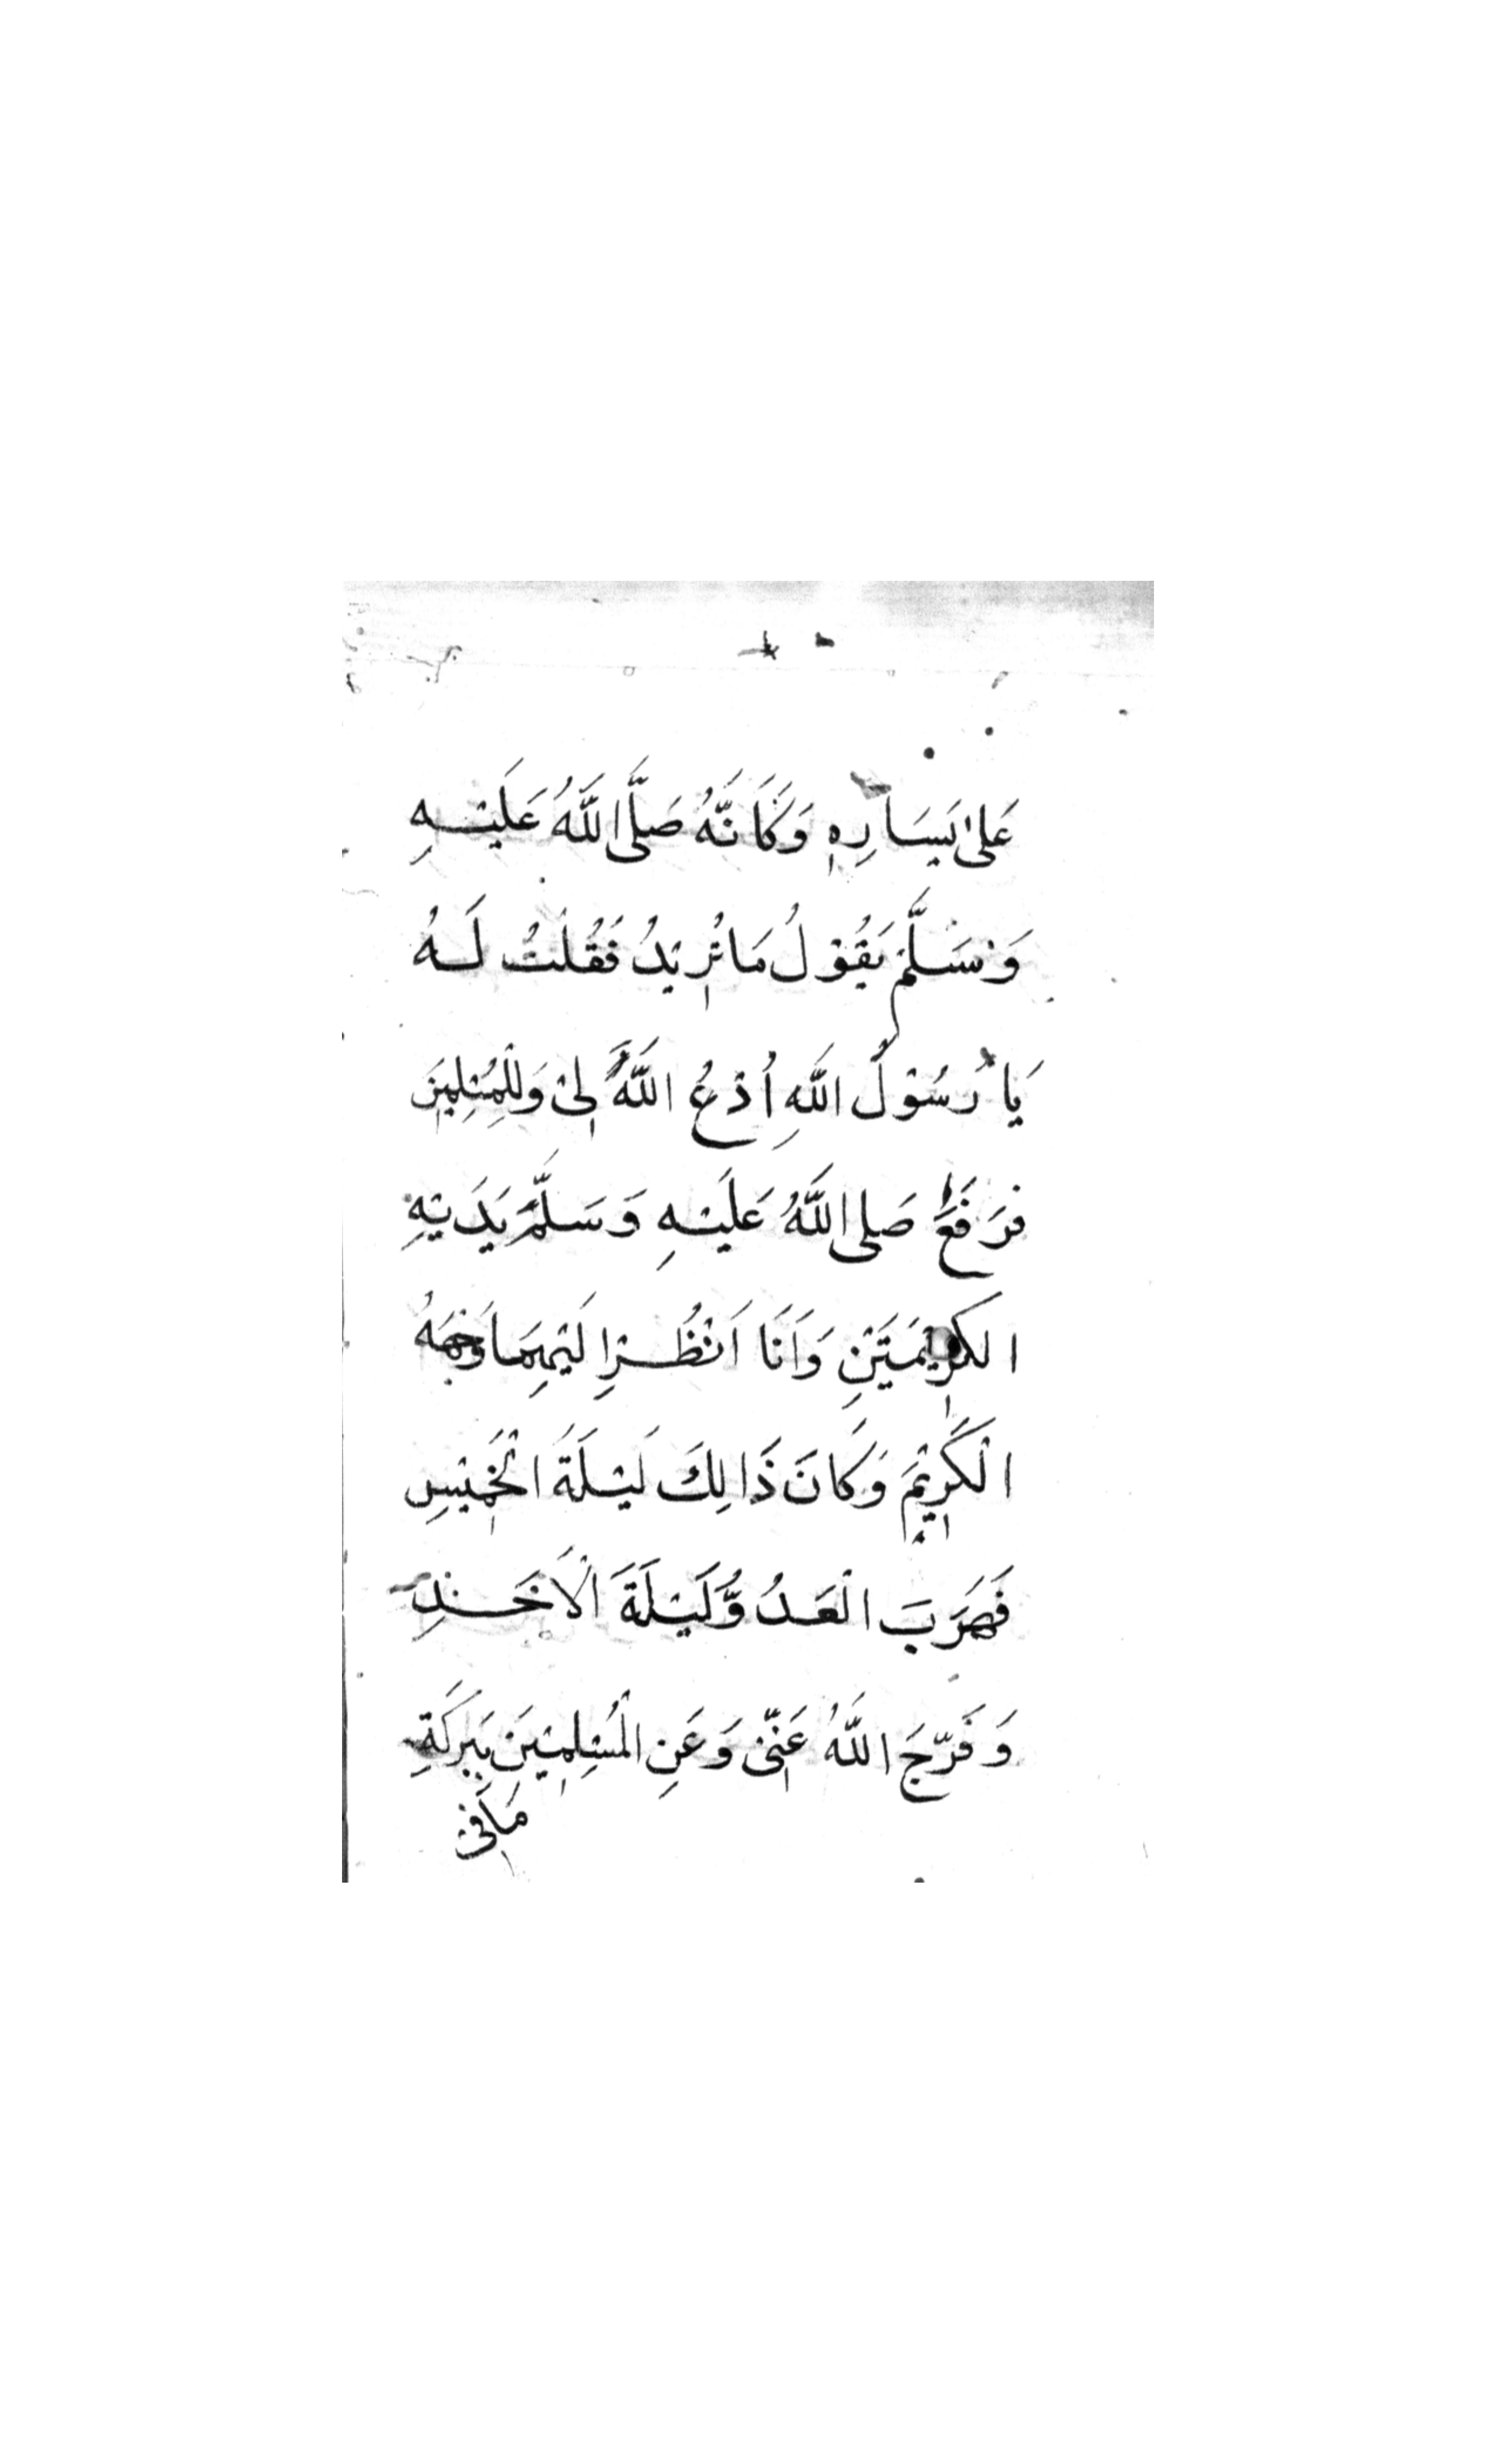 عَلىٰ يَسَارِهٖ وَكَاَنَّهُ صَلَّى اللَّهُ عَلَيْهِ
وَسَلَّمْ يَقُوْلُ مَا تُرِيْدُ فَقُلْتُ لَهُ
يَا رَسُوْلَ اللَّهِ اُدْعُ اللَّهَ لِيْ وَلِلْمُسْلِمِيْنَ
فَرَفَعَ صَلى اللَّهُ عَلَيْهِ وَسَلَّمَ يَدَيْهِ
الكَرِيْمَتَيْنِ وَاَنَا اَنْظُرُ اِلَيْهِمَا وَجْهَهُ
الْكَرِيْمَ وَكَانَ ذَالِكَ لَيْلَةَ الْخَمِيْسِ
فَهَرَبَ الْعَدُوُّ لَيْلَةَ الْاَحَدِ
وَفَرَّجَ اللَّهُ عَنِّيْ وَعَنِ الْمُسْلِمِيْنَ بِبَرَكَةِ
مَا فِيْ